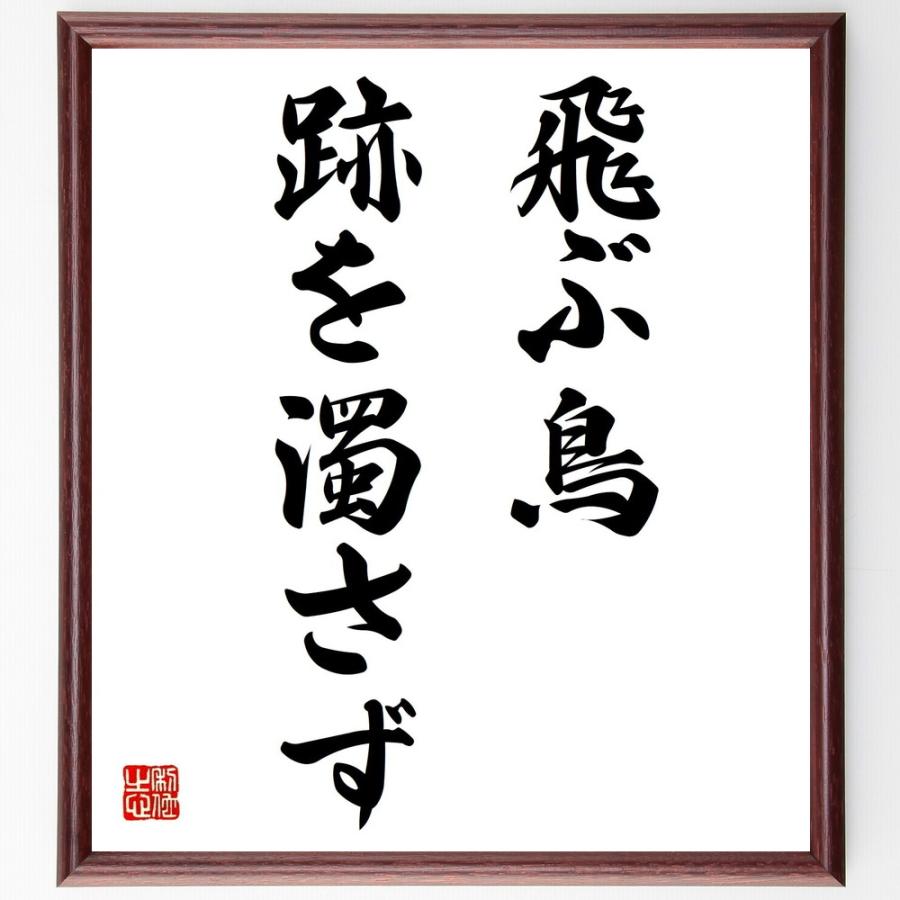 飛ぶ鳥
跡を濁さず